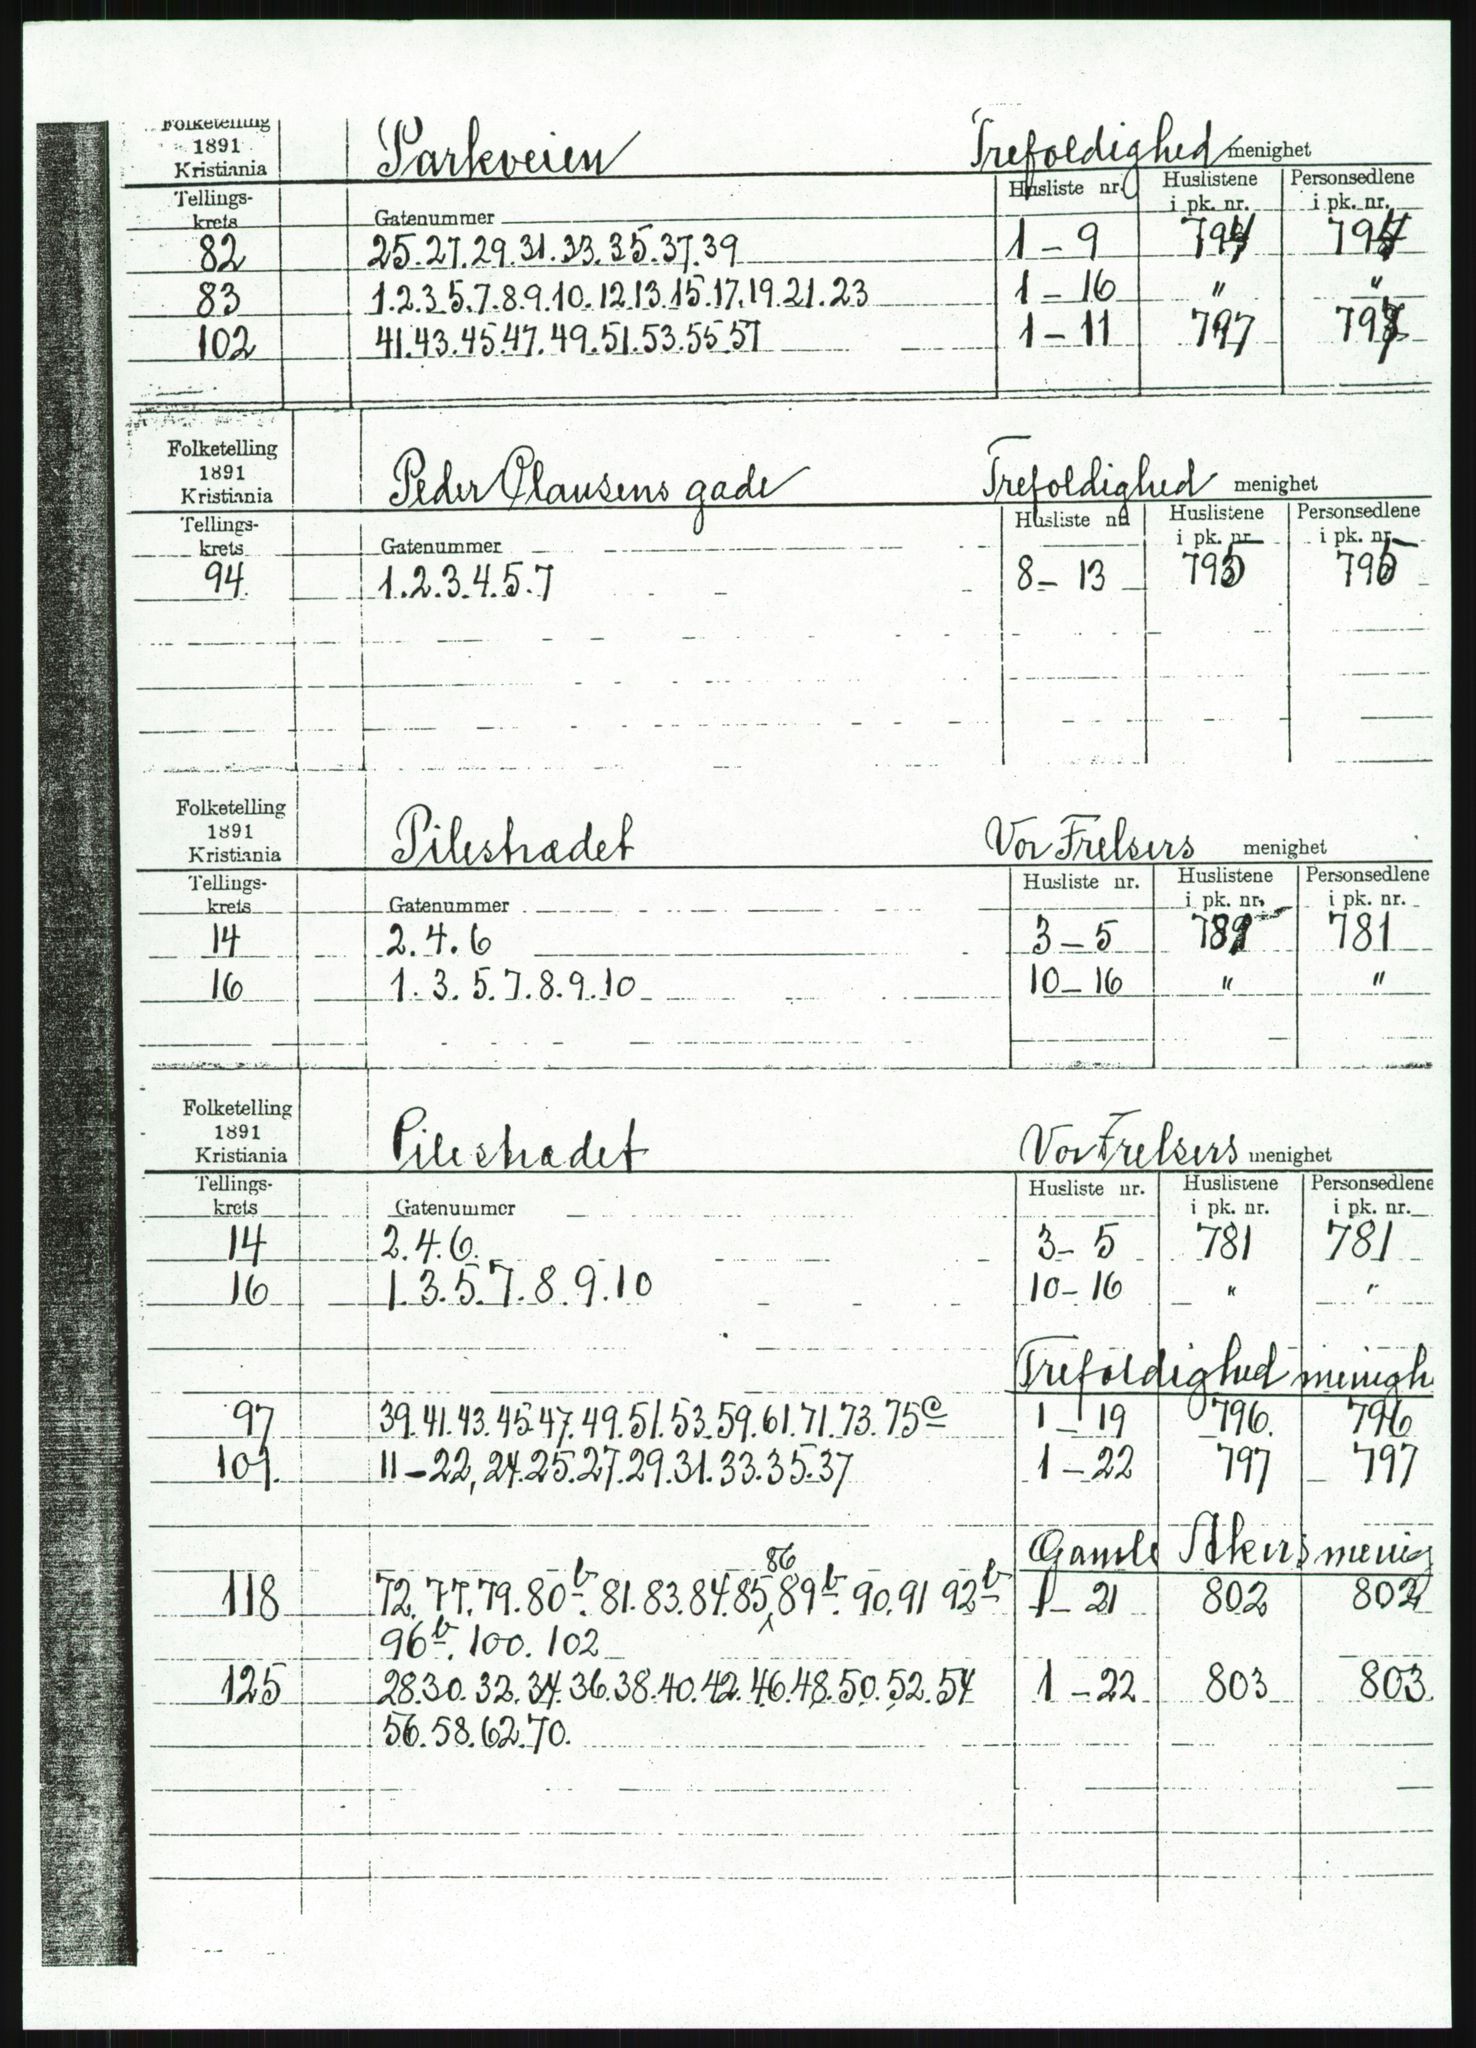 Folketelling
1891
Kristiania
Parkveien
Trefoldighed menighet
Tellings-krets Gatenummer Husliste nr. Huslistene i pk. nr. Personsedlene i pk. nr.
82 25.27.29.31.33.35.37.39 1 – 9 794 794
83 1.2.3.5.7.8.9.10.12.13.15.17.19.21.23 1 – 16 " "
102 41.43.45.47.49.51.53.55.57 1 – 11 797 797
Folketelling
1891
Kristiania
Peder Clausens gade
Trefoldighed menighet
Tellings-krets Gatenummer Husliste nr Huslistene i pk. nr. Personsedlene i pk. nr.
94 1.2.3.4.5.7 8 – 13 795 795
Folketelling
1891
Kristiania
Pilestrædet
Vor Frelsers menighet
Tellings-krets Gatenummer Husliste nr. Huslistene i pk. nr. Personsedlene i pk. nr.
14 2.4.6 3 – 5 781 781
16 1.3.5.7.8.9.10 10 – 16 " "
Folketelling
1891
Kristiania
Pilestrædet
Vor Frelsers menighet
Tellings-krets Gatenummer Husliste nr. Huslistene i pk. nr. Personsedlene i pk. nr.
14 2.4.6. 3 – 5 781 781
16 1.3.5.7.8.9.10 10 – 16 " "
Trefoldighed menigh
97 39.41.43.45.47.49.51.53.59.61.71.73.75c 1 – 19 796. 796
101. 11 – 22, 24.25.27.29.31.33.35.37 1 – 22 797 797
Gamle Akers menig
118 72.77.79.80b.81.83.84.85.86 89b.90.91 92b 1 – 21 802 802
96b.100.102
125 28.30.32.34.36.38.40.42.46.48.50.52.54 1 – 22 803 803
56.58.62.70.